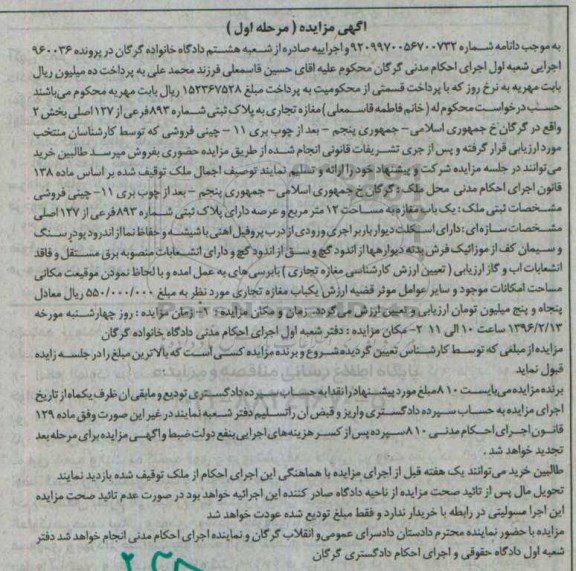 اگهی مزایده ( مرحله اول )
به موجب دادنامه شماره ۹۲۰۹۹۷۰۰۵۶۷۰۰۷۳۲ و اجراییه صادره از شعبه هشتم دادگاه خانواده گرگان در پرونده ۹۶۰۰۳۶
اجرایی شعبه اول اجرای احکام مدنی گرگان محکوم علیه اقای حسین قاسمعلی فرزند محمد علی به پرداخت ده میلیون ریال
بابت مهریه به نرخ روز که با پرداخت قسمتی از محکومیت به پرداخت مبلغ ۱۵۲۳۶۷۵۲۸ ریال بابت مهریه محکوم می‌باشند
حسب درخواست محکوم له ( خانم فاطمه قاسمعلی ) مغازه تجاری به پلاک ثبتی شماره ۸۹۳ فرعی از ۱۲۷ اصلی بخش ۲
واقع در گرگان خ جمهوری اسلامی – جمهوری پنجم – بعد از چوب بری ۱۱ – چینی فروشی که توسط کارشناسان منتخب
مورد ارزیابی قرار گرفته و پس از جری تشریفات قانونی انجام شده از طریق مزایده حضوری بفروش میرسد طالبین خرید
می‌توانند در جلسه مزایده شرکت و پیشنهاد خود را ارائه و تسلیم نمایند توصیف اجمال ملک توقیف شده بر اساس ماده ۱۳۸
قانون اجرای احکام مدنی محل ملک : گرگان خ جمهوری اسلامی – جمهوری پنجم – بعد از چوب بری ۱۱ – چینی فروشی
مشخصات ثبتی ملک : یک باب مغازه به مساحت ۱۲ متر مربع و عرصه دارای پلاک ثبتی شماره ۸۹۳ فرعی از ۱۲۷ اصلی
مشخصات سازه ای : دارای اسکلت دیوار باربر اجری ورودی از درب پروفیل اهنی با شیشه و حفاظ نما از اندرود پودر سنگ
و سیمان کف از موزائیک فرش بدنه دیوارهها از اندود گچ و سقف از اندود گچ و دارای انشعابات منصوبه برق مستقل و فاقد
انشعابات اب و گاز ارزیابی ( تعیین ارزش کارشناسی مغازه تجاری ) بابررسی‌های به عمل امده و با لحاظ نمودن موقعیت مکانی
مساحت امکانات موجود و سایر عوامل موثر قضیه ارزش یکباب مغازه تجاری مورد نظر به مبلغ ۵۵۰/۰۰۰/۰۰۰ ریال معادل
پنجاه و پنج میلیون تومان ارزیابی و تعیین ارزش می‌گردد. زمان و مکان مزایده : ۱- زمان مزایده : روز چهارشنبه مورخه
۱۳۹۶/۲/۱۳ ساعت ۱۰ الی ۱۱ ۲- مکان مزایده : دفتر شعبه اول اجرای احکام مدنی دادگاه خانواده گرگان
مزایده از مبلغی که توسط کارشناس تعیین گردیده شروع و برنده مزایده کسی است که بالاترین مبلغ را در جلسه زایده
قبول نماید
برنده مزایده می‌بایست ۱۰ ٪ مبلغ مورد پیشنهاد را نقدا به حساب سپرده دادگستری تودیع و مابقی ان ظرف یکماه از تاریخ
اجرای مزایده به حساب سپرده دادگستری واریز و قبض آن را تسلیم دفتر شعبه نمایند در غیر این صورت وفق ماده ۱۲۹
قانون اجرای احکام مدنی ۱۰ ٪ سپرده پس از کسر هزینه‌های اجرایی بنفع دولت ضبط و اگهی مزایده برای مرحله بعد
تجدید خواهد شد .
طالبین خرید می‌توانند یک هفته قبل از اجرای مزایده با هماهنگی این اجرای احکام از ملک توقیف شده بازدید نمایند
تحویل مال پس از تائید صحت مزایده از ناحیه دادگاه صادر کننده این اجرائیه خواهد بود در صورت عدم تائید صحت مزایده
این اجرا مسولیتی در رابطه با خریدار ندارد و فقط مبلغ تودیع شده عودت خواهد شد
مزایده با حضور نماینده محترم دادستان دادسرای عمومی و انقلاب گرگان و نماینده اجرای احکام مدنی انجام خواهد شد دفتر
شعبه اول دادگاه حقوقی و اجرای احکام دادگستری گرگان